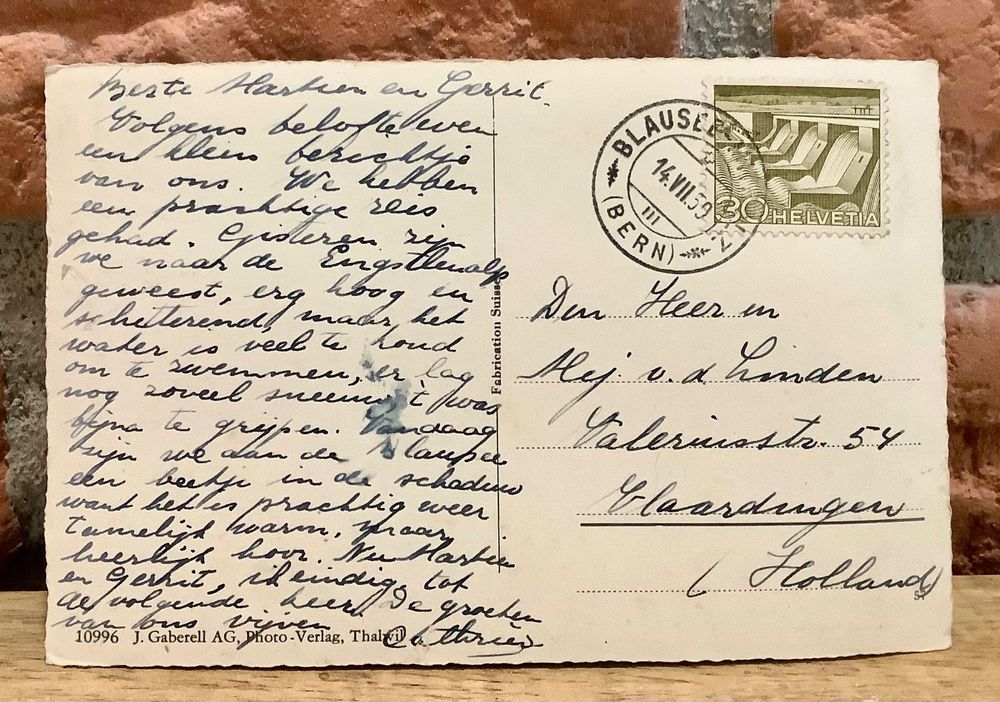 Beste Martien en Gerrit.
Volgens belofte even
een klein berichtje
van ons. We hebben
een prachtige reis
gehad. Gisteren zijn
we naar de Engstlenalp
geweest, erg hoog en
schitterend, maar het
water is veel te koud
om te zwemmen, er lag
nog zoveel sneeuw, 't was
bijna te grijpen. Vandaag
zijn we aan de Blausee
een beetje in de schaduw
want het is prachtig weer
tamelijk warm, maar
heerlijk hoor. Nu Martien
en Gerrit, ik eindig, tot
de volgende keer. De groeten
van ons vijven
10996 J. Gaberell AG, Photo-Verlag, Thalwil
Fabrication Suisse
BLAUSEE
14.VII.59
III
(BERN)
30 HELVETIA
Den Heer en
Mej. v. d Linden
Valeriusstr. 54
Vlaardingen
(Holland)